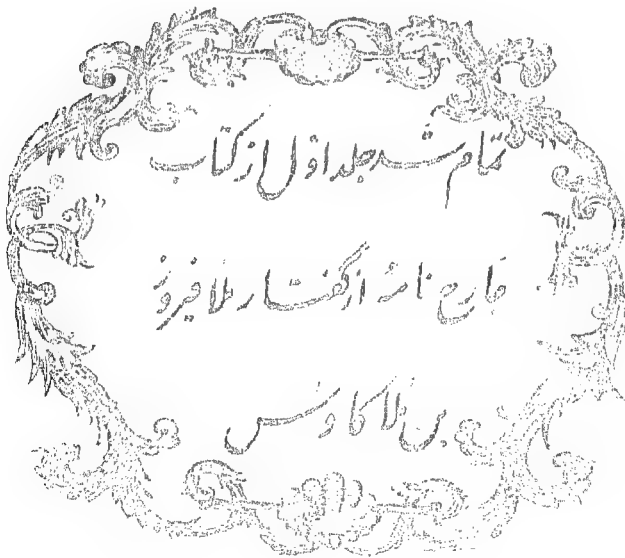 تمام شد جلد اوّل از کتاب
جارج نامهٔ از گفتار ملا فیروز
بن ملا کاوس